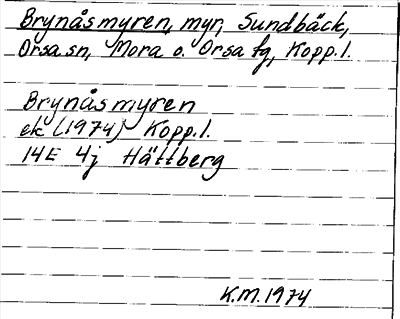 Brynåsmyren, myr, Sundbäck,
Orsa sn, Mora o. Orsa fg, Kopp.l.
Brynåsmyren
ek (1974) Kopp.l.
14E 4j Hättberg
K.M. 1974